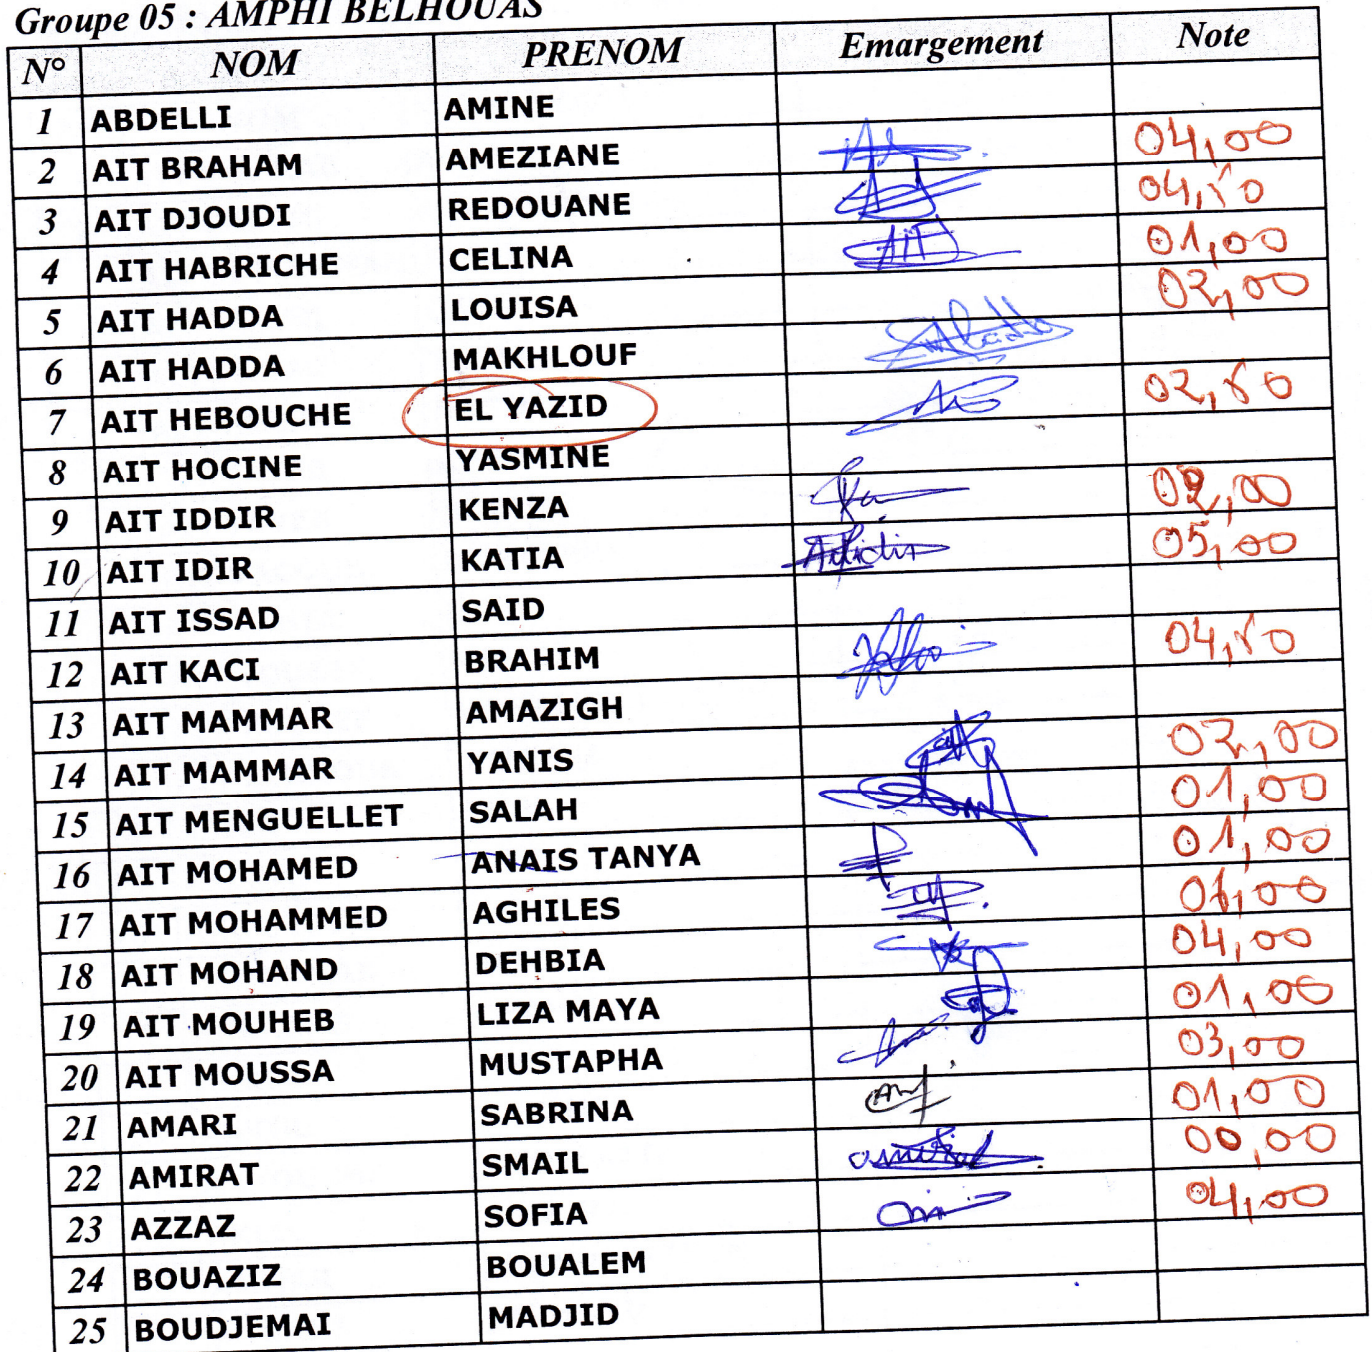 Groupe 05 : AMPHI BELHOUAS
N° NOM PRENOM Emargement Note
1 ABDELLI AMINE
2 AIT BRAHAM AMEZIANE 04,00
3 AIT DJOUDI REDOUANE 04,50
4 AIT HABRICHE CELINA 01,00
5 AIT HADDA LOUISA 02,00
6 AIT HADDA MAKHLOUF
7 AIT HEBOUCHE EL YAZID 02,50
8 AIT HOCINE YASMINE
9 AIT IDDIR KENZA 02,00
10 AIT IDIR KATIA 05,00
11 AIT ISSAD SAID
12 AIT KACI BRAHIM 04,50
13 AIT MAMMAR AMAZIGH
14 AIT MAMMAR YANIS 02,00
15 AIT MENGUELLET SALAH 01,00
16 AIT MOHAMED ANAIS TANYA 01,00
17 AIT MOHAMMED AGHILES
18 AIT MOHAND DEHBIA 04,00
19 AIT MOUHEB LIZA MAYA 01,00
20 AIT MOUSSA MUSTAPHA 03,00
21 AMARI SABRINA 01,00
22 AMIRAT SMAIL 00,00
23 AZZAZ SOFIA 04,00
24 BOUAZIZ BOUALEM
25 BOUDJEMAI MADJID